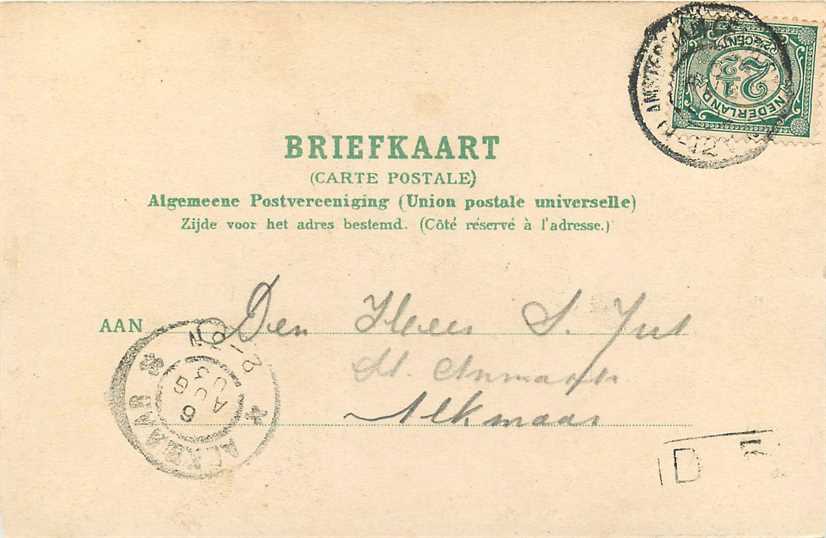 NEDERLAND
2½
CENT
AMSTERDAM
BRIEFKAART
(CARTE POSTALE)
Algemeene Postvereeniging (Union postale universelle)
Zijde voor het adres bestemd. (Côté réservé à l'adresse.)
AAN Den Heer S. Jut
St.
Alkmaar
ALKMAAR
6
AUG
03
2-
N
D